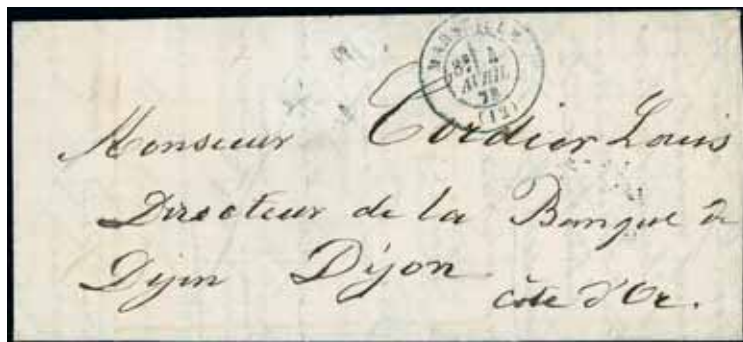 MARSEILLE
8E 4
AVRIL
72
(12)
Monsieur Cordier Louis
Directeur de la Banque à
Dijon Dijon
côte d'Or.